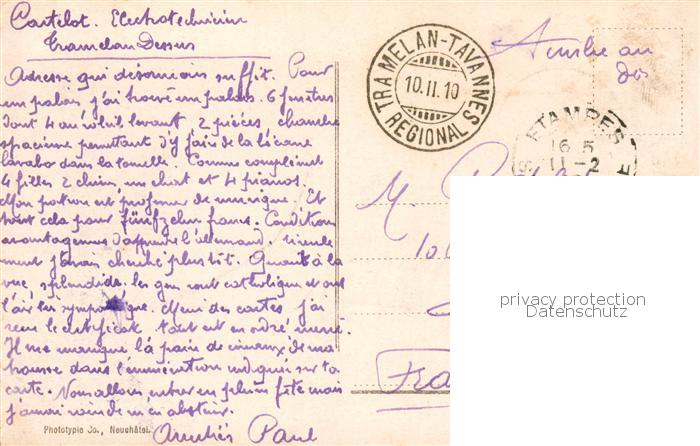 Castelot. Electrotechnicien
Tramelan Dessus
Adresse qui désormais suffit. Pour
un palais j'ai trouvé un palais. 6 fenêtres
dont 4 au soleil levant, 2 pièces chambre
spacieuse permettant d'y faire de la
lavabo dans la tourelle. Comme complément
4 filles 2 chiens, un chat et 4 pianos.
Mon patron est professeur de musique. Et
tout cela pour fünfzehn francs. Condition
avantageuse d'apprendre l'allemand.
ment j'avais cherché plus tôt. Quant à la
vue, splendide. les gens sont catholiques et ont
l'air très sympathique. Merci des cartes, j'ai
reçu le certificat tout est en ordre merci.
Il me manque la paire de ciseaux de ma
trousse dans l'énumération indiquée sur ta
carte. Nous allons entrer en pleine fête mais
j'aurai soin de m'en abstenir.
Amitiés Paul
Phototypie Co., Neuchâtel.
TRAMELAN-TAVANNES
10.II.10
REGIONAL
Timbre au
dos
ETAMPES
16 5
11-2
M.
Fra
privacy protection
Datenschutz